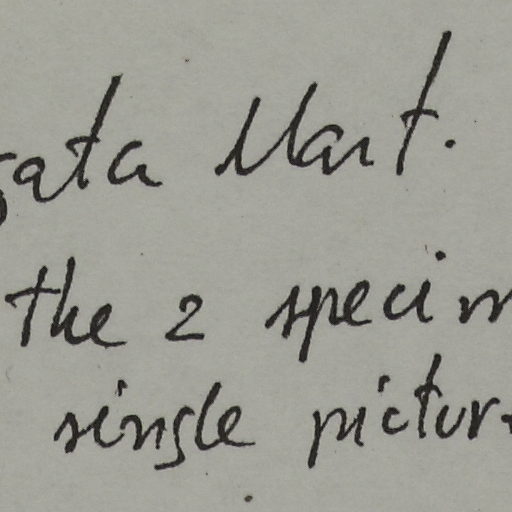 gata Mart.
the 2 specim
single pictur